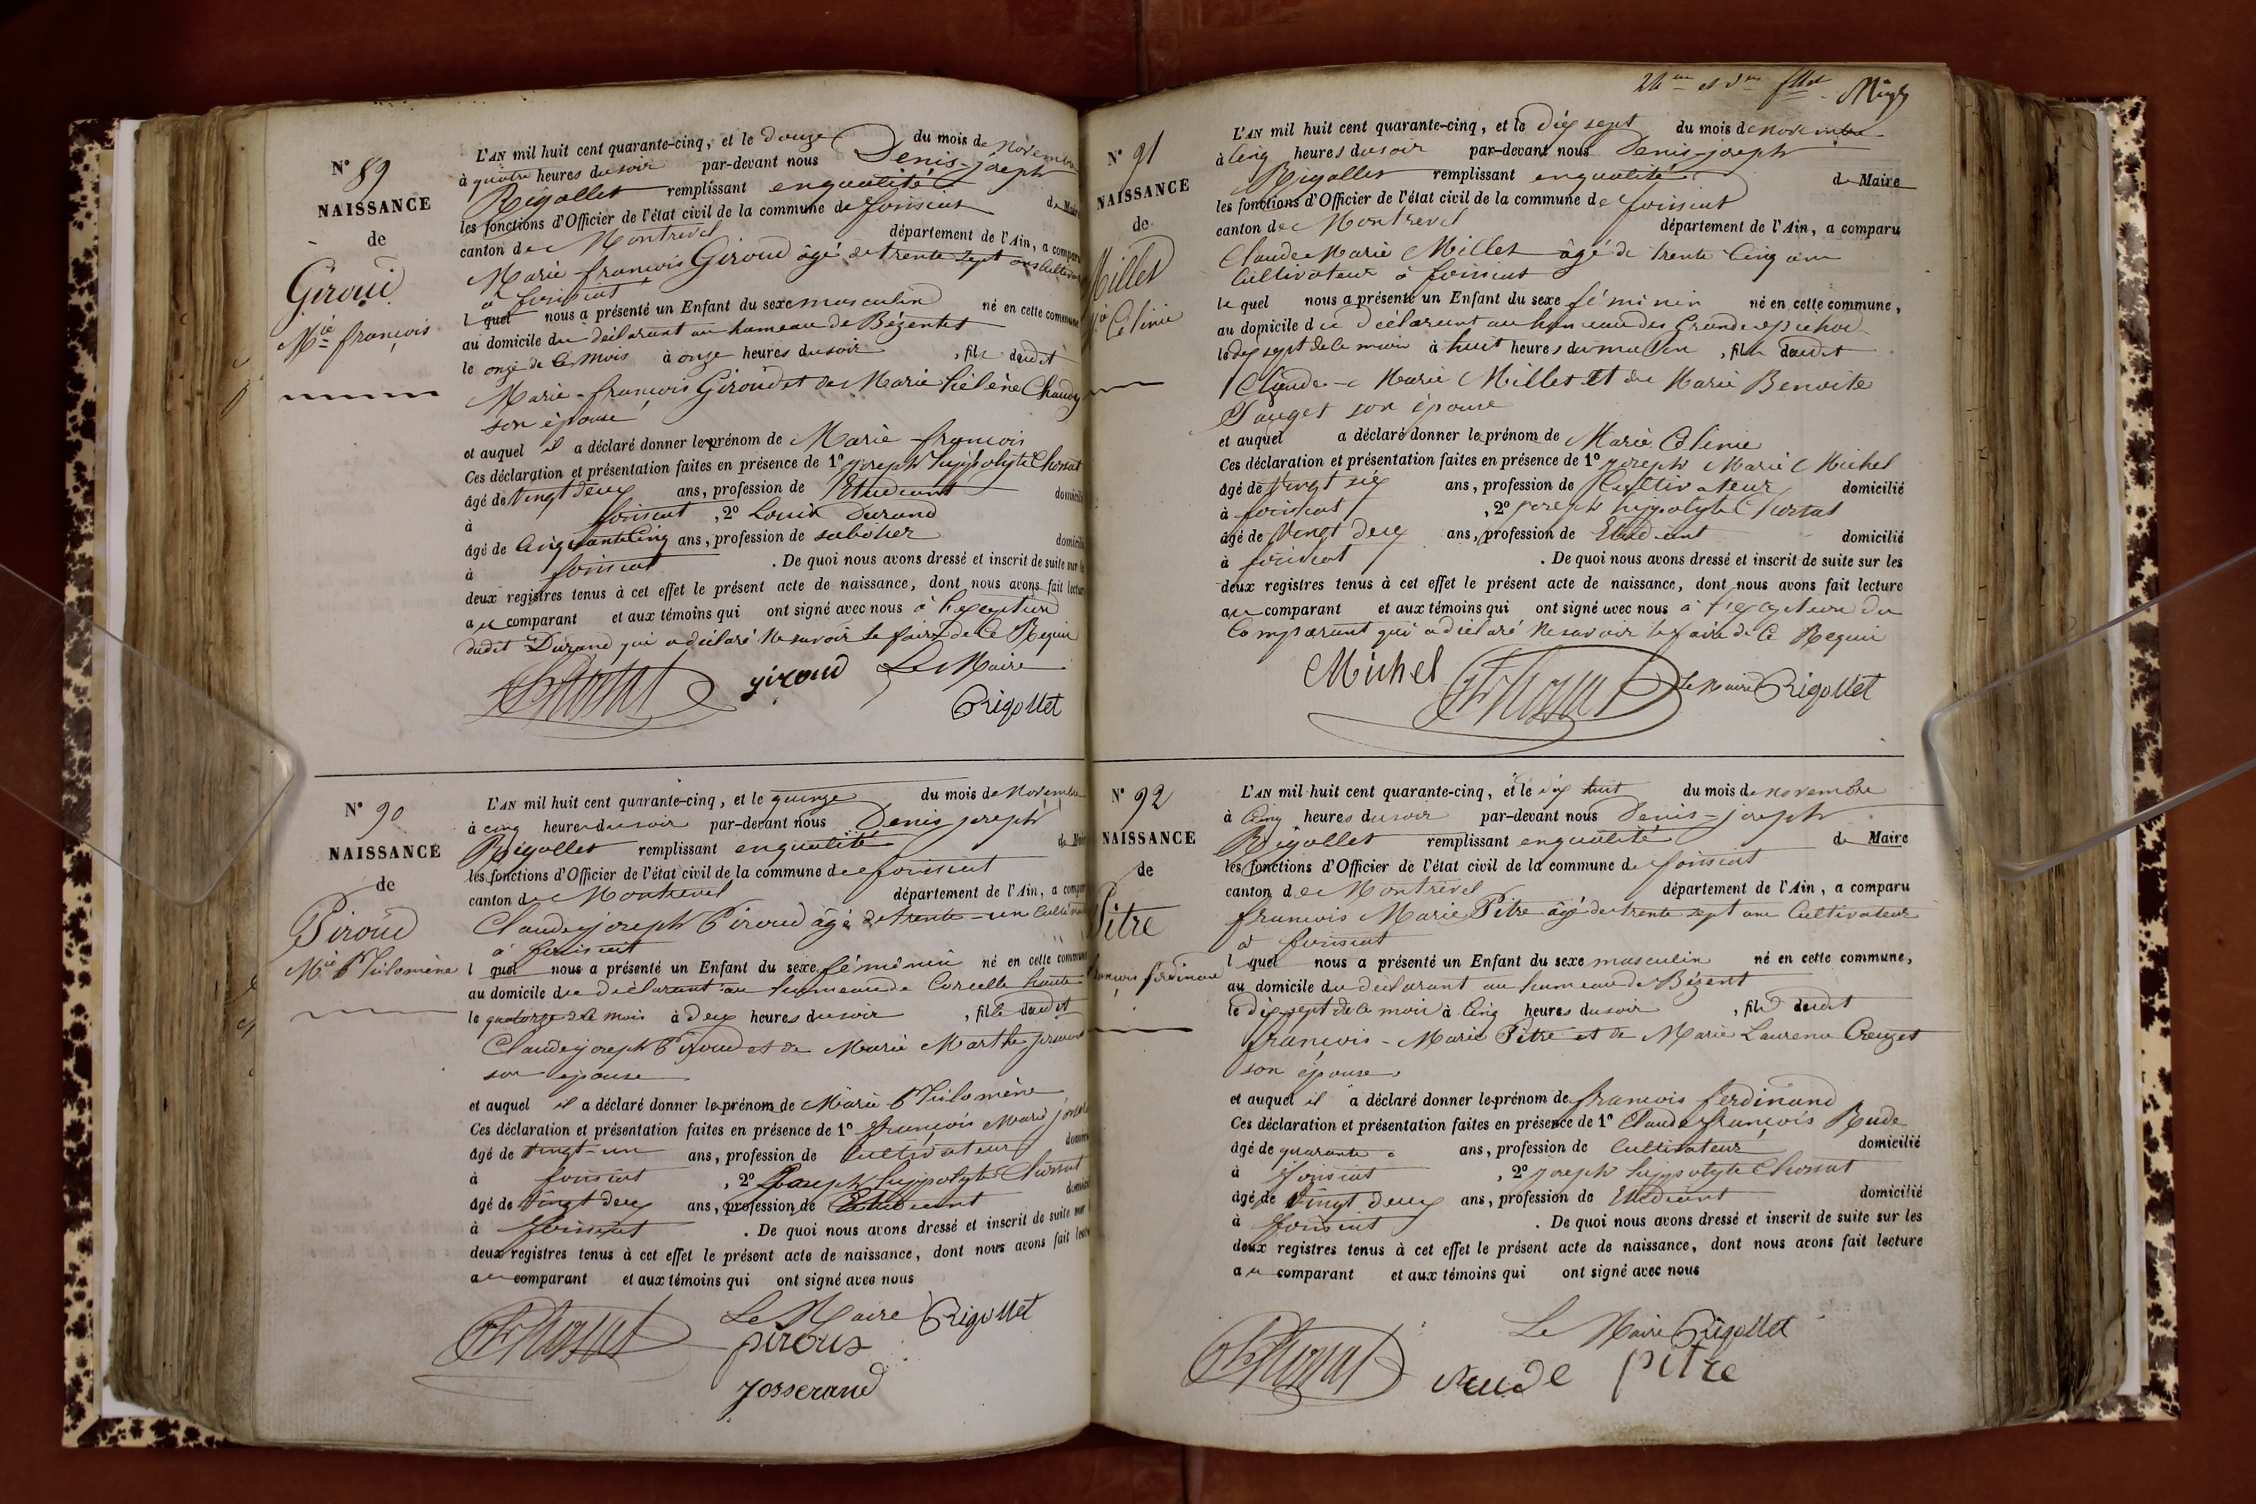 N° 89
NAISSANCE
de
Giroud
Mie françois
L'AN mil huit cent quarante-cinq, et le douze du mois de Novembre
à quatre heures du soir par-devant nous Denis-joseph
Rigollet remplissant en qualité de Maire
les fonctions d'Officier de l'état civil de la commune de foissiat
canton de Montrevel département de l'Ain, a comparu
Marie-françois Giroud âgé de trente sept ans Cultivateur
à foissiat
l quel nous a présenté un Enfant du sexe masculin né en cette commune
au domicile du déclarant au hameau de Bézentet
le onze de ce mois à onze heures du soir, fils dudit
Marie-françois Giroud et de Marie hélène Chaudy
son épouse
et auquel il a déclaré donner le prénom de Marie-françois
Ces déclaration et présentation faites en présence de 1° joseph hyppolyte Chossat
âgé de Vingt deux ans, profession de Etudiant domicilié
à foissiat, 2° Louis Durand
âgé de Cinquante Cinq ans, profession de sabotier domicilié
à foissiat. De quoi nous avons dressé et inscrit de suite sur les
deux registres tenus à cet effet le présent acte de naissance, dont nous avons fait lecture
au comparant et aux témoins qui ont signé avec nous à l'exception
dudit Durand qui a déclaré Ne savoir le faire de ce Requis
Chossat giroud Le Maire
Rigollet
N° 90
NAISSANCE
de
Piroud
Mie Philomène
L'AN mil huit cent quarante-cinq, et le quinze du mois de Novembre
à cinq heures du soir par-devant nous Denis joseph
Rigollet remplissant en qualité de Maire
les fonctions d'Officier de l'état civil de la commune de foissiat
canton de Montrevel département de l'Ain, a comparu
Claude joseph Piroud âgé de trente-un Cultivateur
à foissiat
l quel nous a présenté un Enfant du sexe féminin né en cette commune
au domicile du déclarant au hameau de Corcelle haute
le quatorze de ce mois à deux heures du soir, fille dudit
Claude joseph Piroud et de Marie Marthe
son épouse
et auquel il a déclaré donner le prénom de Marie Philomène
Ces déclaration et présentation faites en présence de 1° françois Marie
âgé de vingt-un ans, profession de Cultivateur domicilié
à foissiat, 2° Joseph hyppolyte Chossat
âgé de Vingt deux ans, profession de Etudiant domicilié
à foissiat. De quoi nous avons dressé et inscrit de suite sur
deux registres tenus à cet effet le présent acte de naissance, dont nous avons fait lecture
au comparant et aux témoins qui ont signé avec nous
Chossat Le Maire Rigollet
pirous
Josserand
N° 91
NAISSANCE
de
Millet
Celinie
L'AN mil huit cent quarante-cinq, et le dix sept du mois de novembre
à Cinq heures du soir par-devant nous Denis-joseph
Rigollet remplissant en qualité de Maire
les fonctions d'Officier de l'état civil de la commune de foissiat
canton de Montrevel département de l'Ain, a comparu
Claude Marie Millet âgé de trente Cinq ans
Cultivateur à foissiat
le quel nous a présenté un Enfant du sexe féminin né en cette commune,
au domicile du déclarant au hameau des
le dix sept de ce mois à huit heures du matin, fille dudit
Claude-Marie Millet Et de Marie Benoite
Pauget son épouse
et auquel a déclaré donner le prénom de Marie Celinie
Ces déclaration et présentation faites en présence de 1° joseph Marie Michel
âgé de Vingt six ans, profession de Cultivateur domicilié
à foissiat, 2° joseph hyppolyte Chossat
âgé de Vingt deux ans, profession de Etudiant domicilié
à foissiat. De quoi nous avons dressé et inscrit de suite sur les
deux registres tenus à cet effet le présent acte de naissance, dont nous avons fait lecture
au comparant et aux témoins qui ont signé avec nous à l'exception du
Comparant qui a déclaré Ne savoir le faire de ce Requis
Michel Chossat Le Maire Rigollet
N° 92
NAISSANCE
de
Pitre
françois ferdinand
L'AN mil huit cent quarante-cinq, et le dix huit du mois de novembre
à Cinq heures du soir par-devant nous Denis-joseph
Rigollet remplissant en qualité de Maire
les fonctions d'Officier de l'état civil de la commune de foissiat
canton de Montrevel département de l'Ain, a comparu
françois Marie Pitre âgé de trente sept ans Cultivateur
à foissiat
l quel nous a présenté un Enfant du sexe masculin né en cette commune,
au domicile du déclarant au hameau de Bézent
le dix sept de ce mois à Cinq heures du soir, fils dudit
françois-Marie Pitre et de Marie Laurence Creuzet
son épouse
et auquel il a déclaré donner le prénom de françois ferdinand
Ces déclaration et présentation faites en présence de 1° Claude françois Rude
âgé de quarante ans, profession de Cultivateur domicilié
à foissiat, 2° joseph hyppolyte Chossat
âgé de Vingt deux ans, profession de Etudiant domicilié
à foissiat. De quoi nous avons dressé et inscrit de suite sur les
deux registres tenus à cet effet le présent acte de naissance, dont nous avons fait lecture
au comparant et aux témoins qui ont signé avec nous
Le Maire Rigollet
Chossat Rude pitre